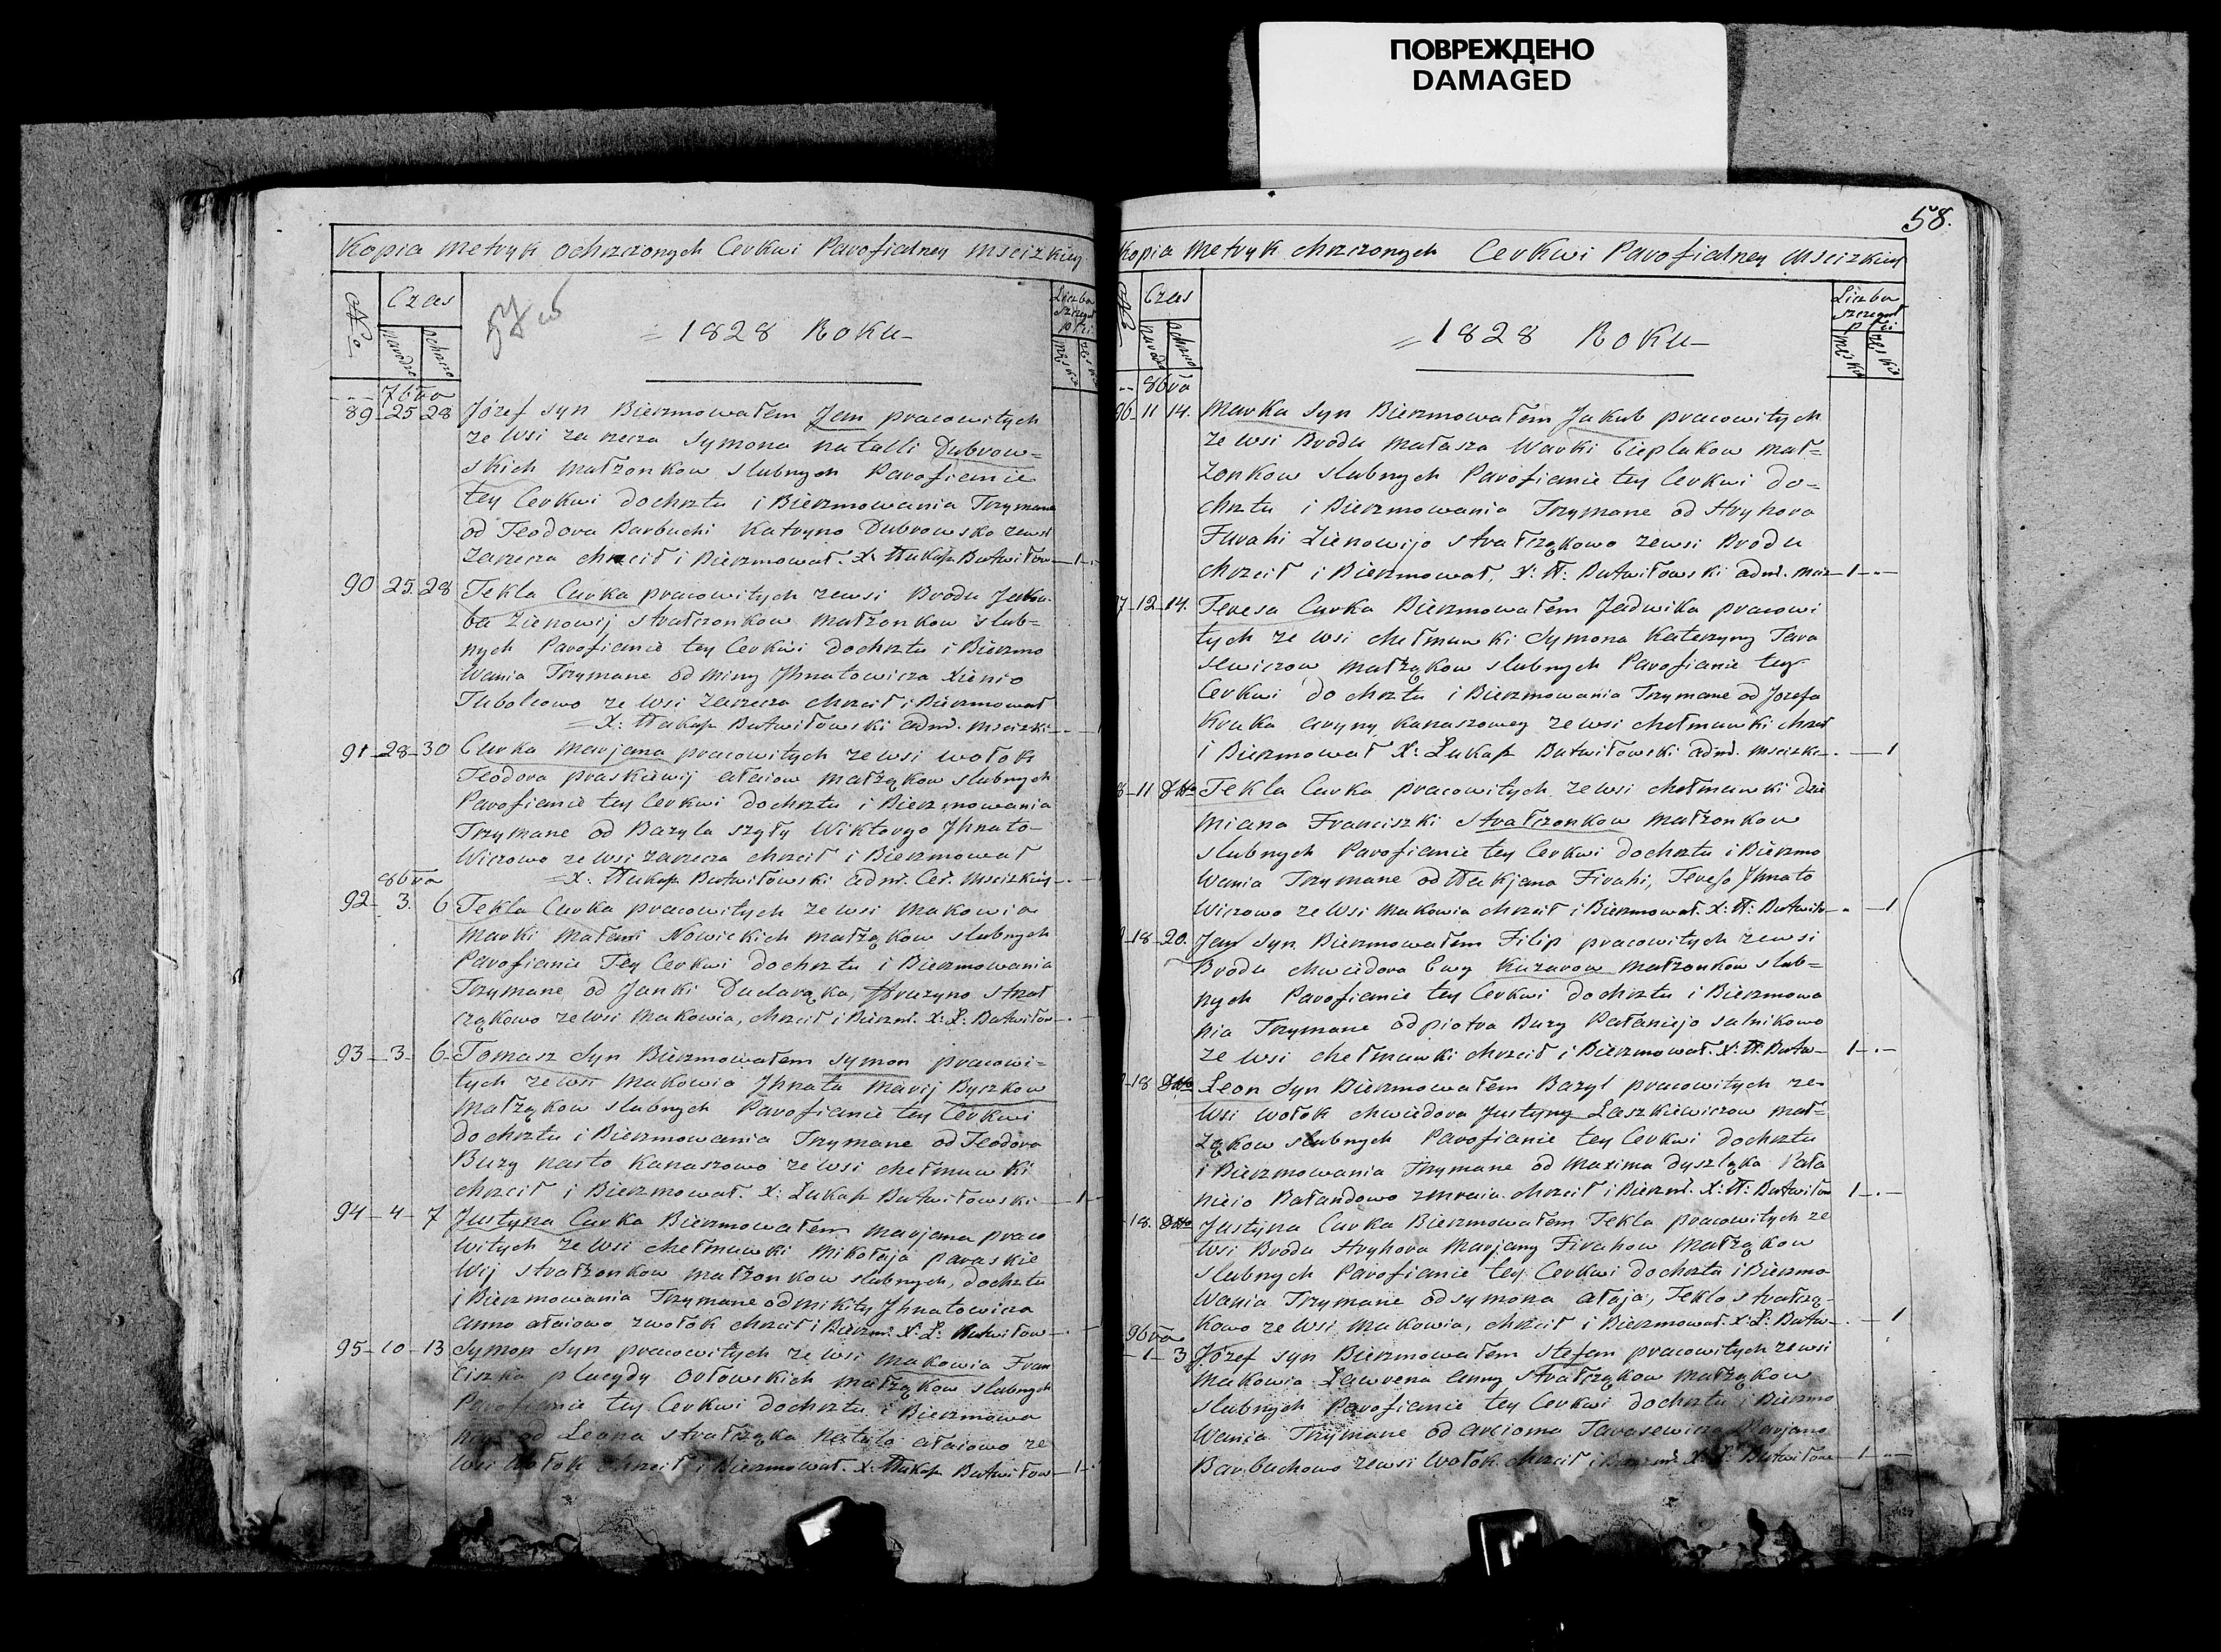 ПОВРЕЖДЕНО
DAMAGED
Kopia metryk ochrzczonych Cerkwi Parofialney Mscizkiey
No
Czas
narodze
ochrzco
Liczba
szczegul
męsko
= 1828 Roku –
7bra
89 – 25 – 28 Józef syn Bierzmowałem Jan pracowitych
ze wsi zarzecza Symona natalli Dubrow=
skich małzonkow slubnych Parofianie
tey Cerkwi dochrztu i Bierzmowania Trzymane
od Teodora Barbuchi Katryno Dubrowsko zewsi
zarzecza chrzcił i Bierzmował. X: Łukasz Butwiłow – 1 –
90 25. 28 Tekla Curka pracowitych zewsi Brodu Jaku
ba Zienowij strałczonkow małzonkow slub=
nych Parofianie tey Cerkwi dochrztu i Bierzmo
wania Trzymane od miny Jhnatowicza Xienio
Tubolcowo ze wsi zarzecza chrzcił i Bierzmował
= X: Łukasz Butwiłowski adm. Mscizki –
91 – 28 – 30 Curka marjana pracowitych ze wsi wołok
Teodora praskiewij ałaiow małząkow slubnych
Parofianie tey Cerkwi dochrztu i Bierzmowania
Trzymane od Bazyla szyły Wiktoryo Jhnato–
wiczowo ze wsi zarzecza chrzcił i Bierzmował
= X: Łukasz Butwiłowski adm. Cer. Mscizkiey –
8bra
92 – 3. 6 Tekla Curka pracowitych ze wsi Makowia
Marki Nowickich małząkow slubnych
Parofianie Tey Cerkwi dochrztu i Bierzmowania
Trzymane od Janki Dudarąka, Hruzyno strał
cząkowo ze wsi Makowia, chrzcił i Bierzm. X: Ł: Butwiłow –
93 – 3 – 6 – Tomasz syn Bierzmowałem symon pracowi=
tych ze wsi Makowia Jhnata Marij Byczkow
małząkow slubnych Parofianie tey Cerkwi
dochrztu i Bierzmowania Trzymane od Teodora
Buzy nasto Kanaszowo ze wsi chełmuw ki
chrzcił i Bierzmował. X: Łukasz Butwiłowski – 1 –
94 – 4 – 7 Justyna Curka Bierzmowałem marjana praco
witych ze wsi chełmuwki Mikołaja paraskie
wij strałzonkow małzonkow slubnych, dochrztu
i Bierzmowania Trzymane od mikity Jhnatowicza
anno ałaiowo zwołok chrzcił i Bierzm. X: Ł: Butwiłow –
95 – 10 – 13 Symon syn pracowitych ze wsi Makowia Fran
ciszka placydy orłowskich małząkow slubnych
Parofianie tey Cerkwi dochrztu i Bierzmowa
nia od Leona strałcząka Natalo ałaiowo ze
wsi wołok chrzcił i Bierzmował. X: Łukasz Butwiłow – 1 –
58.
Kopia Metryk chrzczonych Cerkwi Parofialney Mscizkiey
No
Czas
ochrzco
Liczba
szczegul
męsko
= 1828 Roku –
8bra
96 – 11 14. Marka syn Bierzmowałem Jakub pracowitych
ze wsi Brodu małasza Warki Cieplakow mał=
zonkow slubnych Parofianie tey Cerkwi do=
chrztu i Bierzmowania Trzymane od Hryhora
Furahi Zienowijo strałcząkowo ze wsi Brodu
chrzcił i Bierzmował, X: Ł: Butwiłowski adm. Msc – 1 –
7 – 12 – 14. Teresa Curka Bierzmowałem Jadwika pracowi
tych ze wsi chełmuw ki Symona Katerzyny Tara
sewiczow małząkow slubnych Parofianie tey
Cerkwi do chrztu i Bierzmowania Trzymane od Jozefa
Kruka aryny kanaszowey ze wsi chełmuwki chrzcił
i Bierzmował X: Łukasz Butwiłowski adm. Mscizki – – 1
8 – 11 Dtto Tekla Curka pracowitych ze wsi chełmuwki Dzie
miana Franciszki strałczonkow małzonkow
slubnych Parofianie tey Cerkwi dochrztu i Bierzmo
wania Trzymane od Łukjana Firahi, Tereso Jhnato
wiczowo ze wsi Makowia chrzcił i Bierzmował. X: Ł: Butwiło – – 1
– 18 – 20. Jan syn Bierzmowałem Filip pracowitych zewsi
Brodu chwiedora Ewy Kuzarow małzonkow slub=
nych Parofianie tey Cerkwi dochrztu i Bierzmowa
nia Trzymane od piotra Buzy Pałaniejo salnikowo
ze wsi chełmuwki chrzcił i Bierzmował. X: Ł: Butw – 1 –
– 18 Dtto Leon syn Bierzmowałem Bazyl pracowitych ze
wsi wołok chwiedora Justyny Laszkiewiczow mał=
ząkow slubnych Parofianie tey Cerkwi dochrztu
i Bierzmowania Trzymane od Maxima dyszląka Pała
nieio Bałandowo chrzcił i Bierzm. X: Ł: Butwiłow 1 –
– 18. Dtto Justyna Curka Bierzmowałem Tekla pracowitych ze
wsi Brodu Hryhora Marjany Firahow małząkow
slubnych Parofianie tey Cerkwi dochrztu i Bierzmo
wania Trzymane od symona ałaja, Teklo strałczą–
kowo ze wsi Makowia, chrzcił i Bierzmował. X: Ł: Butw – – 1
9bra
– 1 – 3 Józef syn Bierzmowałem stefan pracowitych zewsi
Makowia Ławrena anny strałcząkow małząkow
slubnych Parofianie tey Cerkwi dochrztu i Bierzmo
wania Trzymane od arcioma Tarasewicza Marjano
Barbuchowo zewsi wołok chrzcił i Bierzm. X: Ł: Butwiłow – 1 –